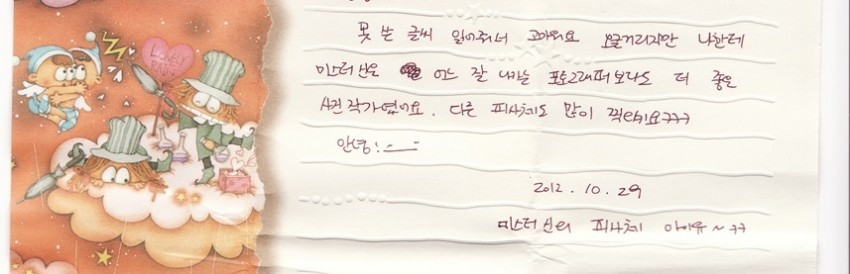 못 쓴 글씨 읽어줘서 고마워요 오글거리지만 나한테
미스터 신은 어느 잘 나가는 포토그래퍼보다도 더 좋은
사진 작가였어요. 다른 피사체도 많이 찍으시요ㅋㅋㅋ
안녕!
2012. 10. 29
미스터 신의 피사체 아이유~ㅋㅋ